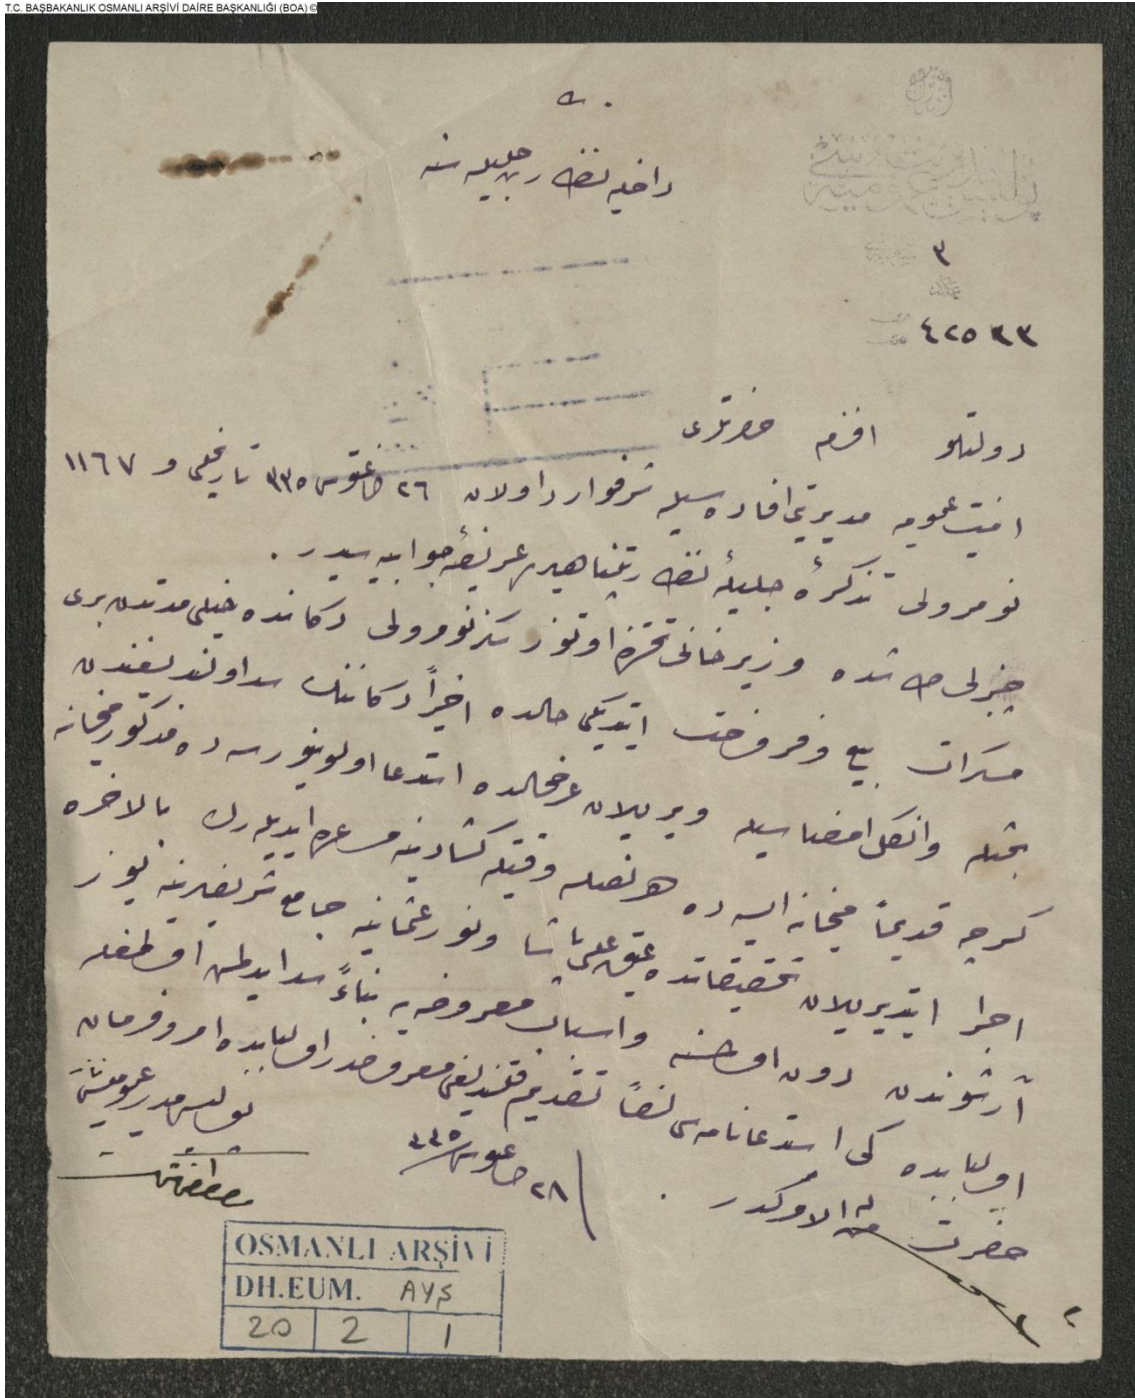 T.C. BAŞBAKANLIK OSMANLI ARŞİVİ DAİRE BAŞKANLIĞI (BOA) ©
داخلیه نظارت جلیله سنه
پولیس مدیریت عمومیه سی
٣
٤٢٥٣٣
دولتلو افندم حضرتلری
امنیت عمومیه مدیریتی افاده سیله شرفوارد اولان ٢٦ اغستوس ٣٣٥ تاریخلی و ١١٦٧
نومرولی تذکرهٔ جلیلهٔ نظارتپناهیلری عریضهٔ جوابیه سیدر .
چنبرلی طاشده وزیر خانی تحتنده اوتوز سکز نومرولی دکانده خیلی مدتدن بری
مسکرات بیع و فروخت ایتدیکی حالده اخیراً دکاننك سد اولندیغندن
بحثله وانکل امضاسیله ویریلان عرضحالده استدعا اولنیورسه ده مذکور میخانه
کرچه قدیماً میخانه ایسه ده هر نصلسه وقتیله کشادینه مساعده ایدیله رك بالاخره
اجرا ایتدیریلان تحقیقاتده عتیق علی پاشا و نور عثمانیه جامع شریفلرینه یوز
آرشوندن دون اولمسنه و اسباب معروضه یه بناءً سد ایدلمش اولمغله
اولبابده کی استدعانامه سی لفاً تقدیم قلندیغی معروضدر اولبابده امر و فرمان
حضرت من له الامرکدر .
٢٨ اغستوس ٣٣٥
پولیس مدیر عمومیسی
OSMANLI ARŞİVİ
DH.EUM. AYŞ
20 2 1